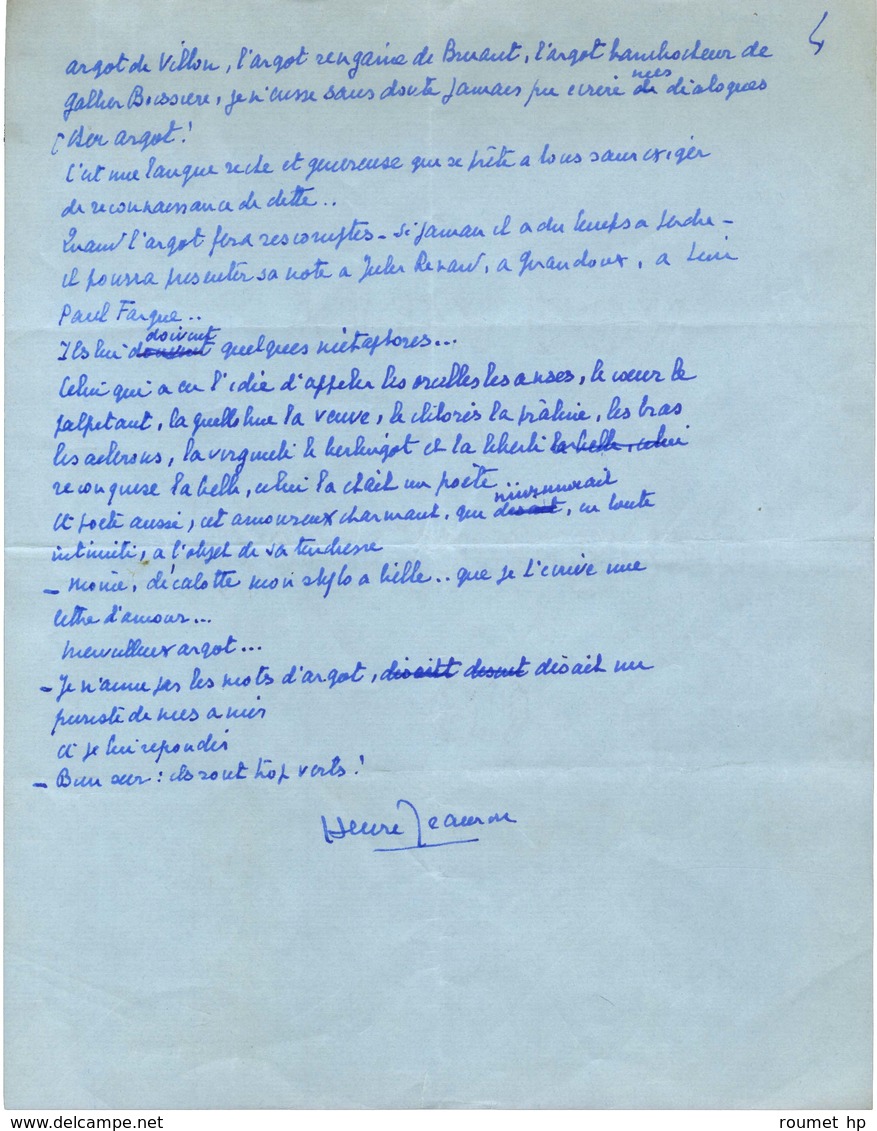 argot de Villon, l'argot rengaine de Bruant, l'argot bambocheur de
Galtier Boissiere, je n'eusse sans doute jamais pu ecrire mes dialogues
Cher argot!
C'est une langue riche et genereuse qui se prête a tous sans exiger
de reconnaissance de dette..
Quand l'argot fera ses comptes - si jamais il a du temps a perdre -
il pourra presenter sa note a Jules Renard, a Giraudoux, a Leon
Paul Fargue..
Ils lui doivent quelques métaphores...
Celui qui a eu l'idée d'appeler les oreilles les anses, le coeur le
palpetant, la guillotine la veuve, le clitoris la praline, les bras
les ailerons, la virginité le berlingot et la liberté la belle, celui
reconquise la belle, celui la etait un poète...
Et poete aussi, cet amoureux charmant, qui murmurait, en toute
intimité, a l'objet de sa tendresse
- Mome, décalotte mon stylo a bille.. que je t'ecrive une
lettre d'amour...
Merveilleux argot...
- Je n'aime pas les mots d'argot, disait un
puriste de mes amis
Et je lui repondis
- Bien sur : ils sont trop verts!
Henri Jeanson
roumet hp